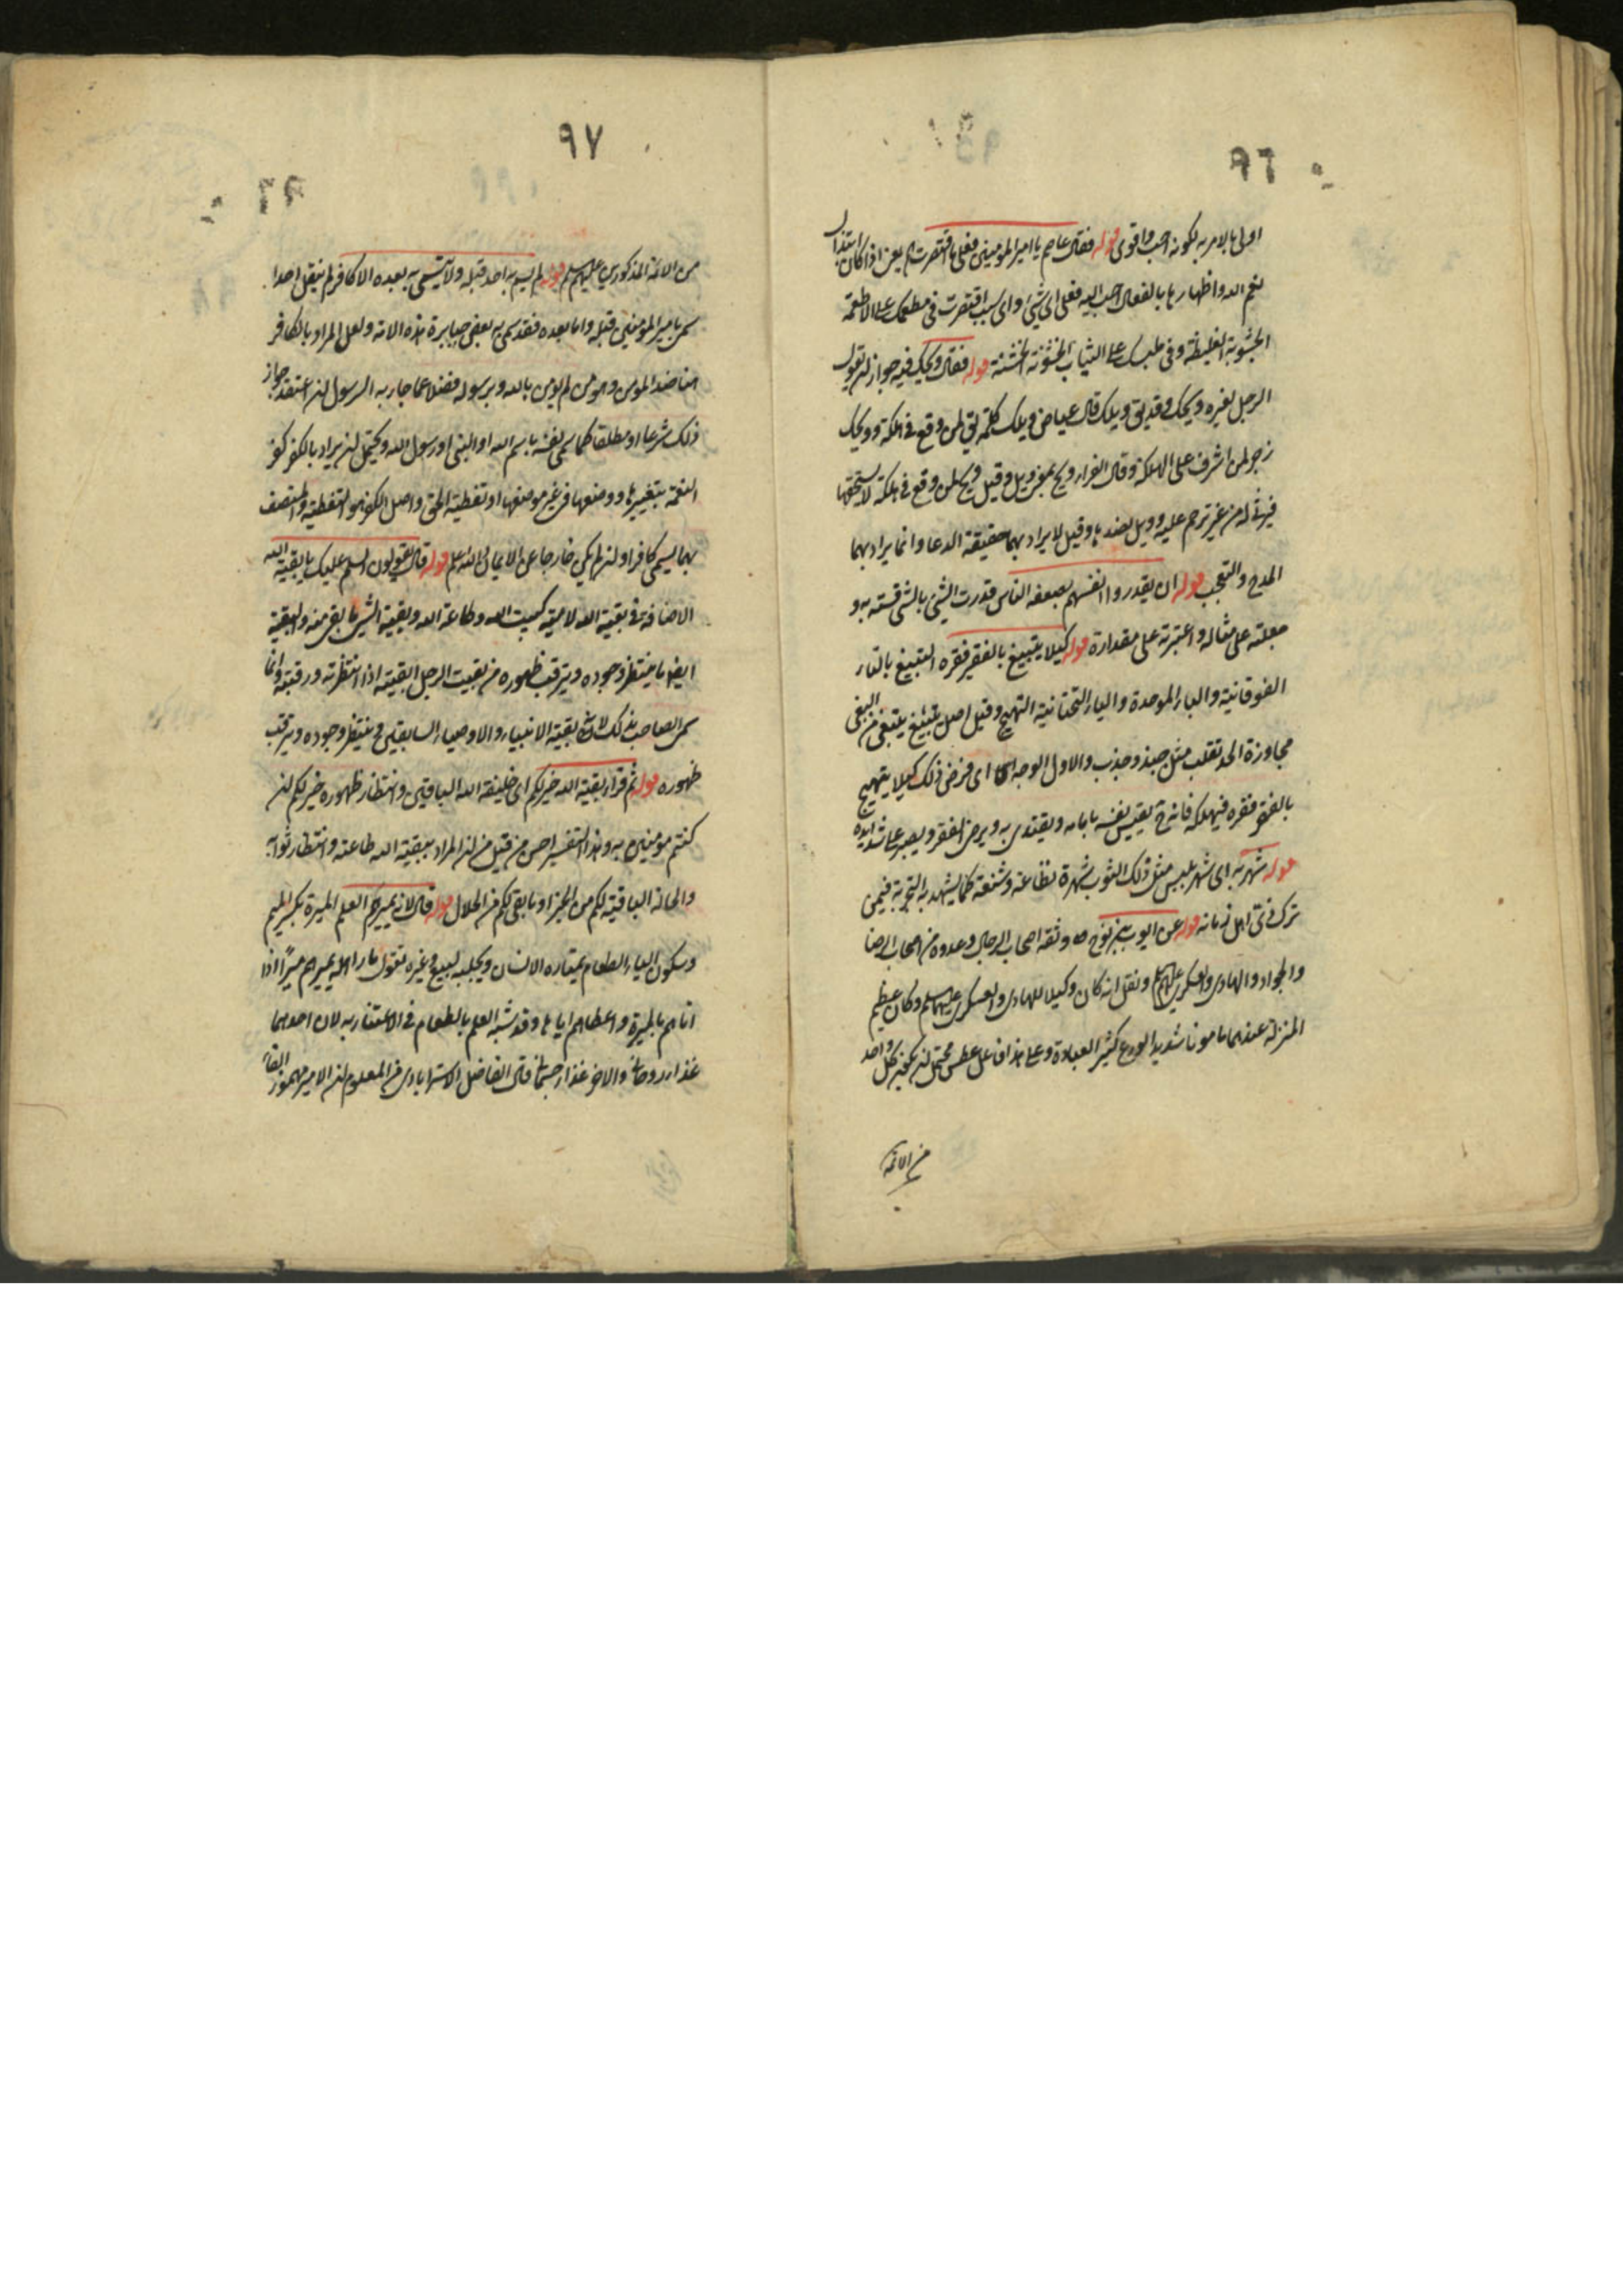 ٩٦
اولى بالامر به لكونه احب واقوى قوله فقال عاصم يا امير المؤمنين فعلى ما اقتصرت الخ يعنى اذا كان ابتذال
نعم الله واظهارها بالفعال احب اليه فعلى اى شىء واى سبب اقتصرت فى مطعمك على الاطعمة
الجشوبة الغليظة وفى ملبسك على الثياب الخشونة الخشنة قوله فقال ويحك فيه جواز ان يقول
الرجل لغيره ويحك وقد يق ويلك قال عياض ويلك كلمة يق لمن وقع فى هلكة وويحك
زجر لمن اشرف على الهلكة وقال الفراء ويح بمعنى ويل وقيل ويح لمن وقع فى هلكة لا يستحقها
فيرثى له من غير ترحم عليه وويل بضدها وقيل لا يراد بهما حقيقة الدعا وانما يراد بهما
المدح والتعجب قوله ان يقدروا انفسهم بضعفه الناس قدرت الشىء بالشى قسته به و
جعلته على مثاله واعتبرته على مقداره قوله كيلا يتبيغ بالفقير فقره التبيغ بالتاء
الفوقانية والباء الموحدة والياء التحتانية التهيج وقيل اصل يتبيغ يتبغى من البغى
مجاوزة الحد تقلب مثل جبذ وجذب والاول اوجه اى فرض ذلك كيلا يتهيج
بالفقير فقره فيهلكه فانه ح يقيس نفسه بامامه ويقتدى به ويرضى الفقر ويصبر على شدايده
قوله شهر به اى شهر بلبس مثل ذلك الثوب شهرة فظاعة وشنعة كما يشهد به التجربة فيمن
ترك زى اهل زمانه قوله عن ايوب بن نوح وثقه اصحاب الرجال وعدوه من اصحاب الرضا
والجواد والهادى والعسكرى عليهم السلام ونقل انه كان وكيلا للهادى والعسكرى عليهما السلام وكان عظيم
المنزلة عندهما مامونا شديد الورع كثير العبادة وعلى هذا فاعل عطس يحتمل ان يكون كل واحد
من الائمة
٩٧
من الائمة المذكورين عليهم السلم قوله لم يسم به احد قبله ولا يتسمى به بعده الا كافر لم ينقل احدا
سمى بامير المؤمنين قبله واما بعده فقد سمى به بعض جبابرة هذه الامة ولعل المراد بالكافر
هنا ضد المؤمن وهو من لم يؤمن بالله وبرسوله فضلا عما جاء به الرسول ان اعتقد جواز
ذلك شرعا او مطلقا كما سمى نفسه باسم الله او النبى او رسول الله ويحتمل ان يراد بالكفر كفر
النعمة بتغييرها ووضعها فى غير موضعها او تغطية الحق واصل الكفر هو التغطية والمتصف
بهما يسمى كافرا وان لم يكن خارجا عن الايمان والله اعلم قوله قال يقولون السلم عليك يا بقية الله
الاضافة فى بقية الله لامية كبيت الله وطاعة الله وبقية الشىء ما بقى منه والبقية
ايضا ما ينتظر وجوده ويترقب ظهوره من بقيت الرجل ابقيته اذا انتظرته ورقبته وانما
سمى الصاحب بذلك لانه بقية الانبياء والاوصياء السابقين وينتظر وجوده ويترقب
ظهوره قوله ثم قرا بقية الله خير لكم اى خليفة الله الباقيين وانتظار ظهوره خير لكم ان
كنتم مومنين به وهذا التفسير احسن من قيل من ان المراد ببقية الله طاعته وانتظار ثوابه
والحالة الباقية لكم من الخير او ما بقى لكم من الحلال قوله قال لانه يميرهم العلم الميرة بكسر الميم
وسكون الياء الطعام يمتاره الانسان ويجلبه لبيع وغيره تقول مار اهله يميرهم ميرا اذا
اتاهم بالميرة واعطاهم اياها وقد شبه العلم بالطعام فى الاغتذاء به لان احدهما
غذاء روحانى والاخر غذاء جسمانى قال الفاضل الاسترابادى من المعلوم ان الامير مهموز الفاء